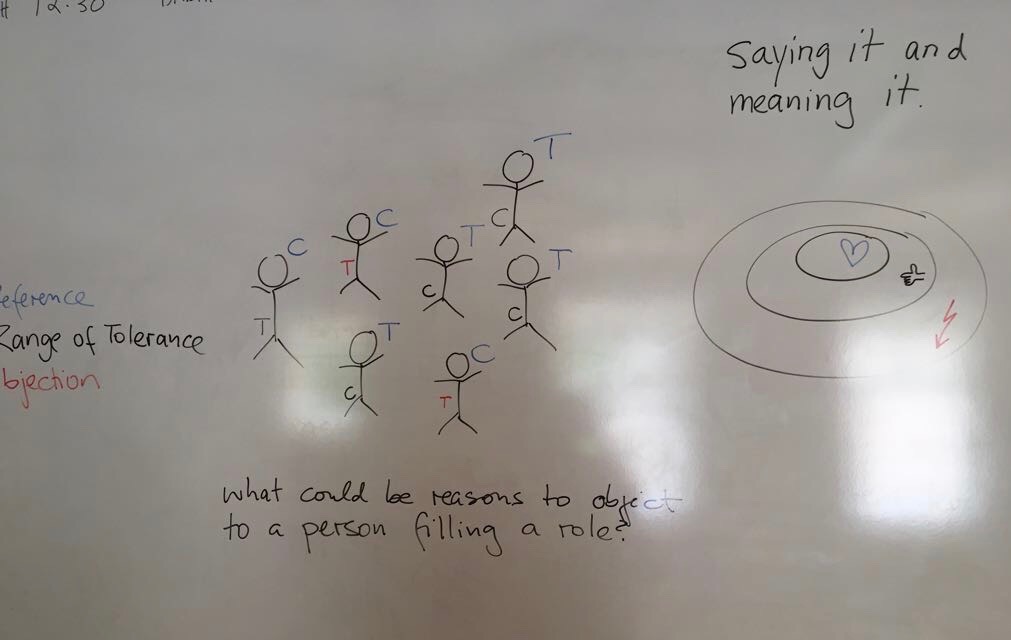 12.30
Saying it and
meaning it.
T
C
C
C
T
T
C
T
C
T
C
T
T
C
C
T
eference
Range of Tolerance
bjection
what could be reasons to object
to a person filling a role?